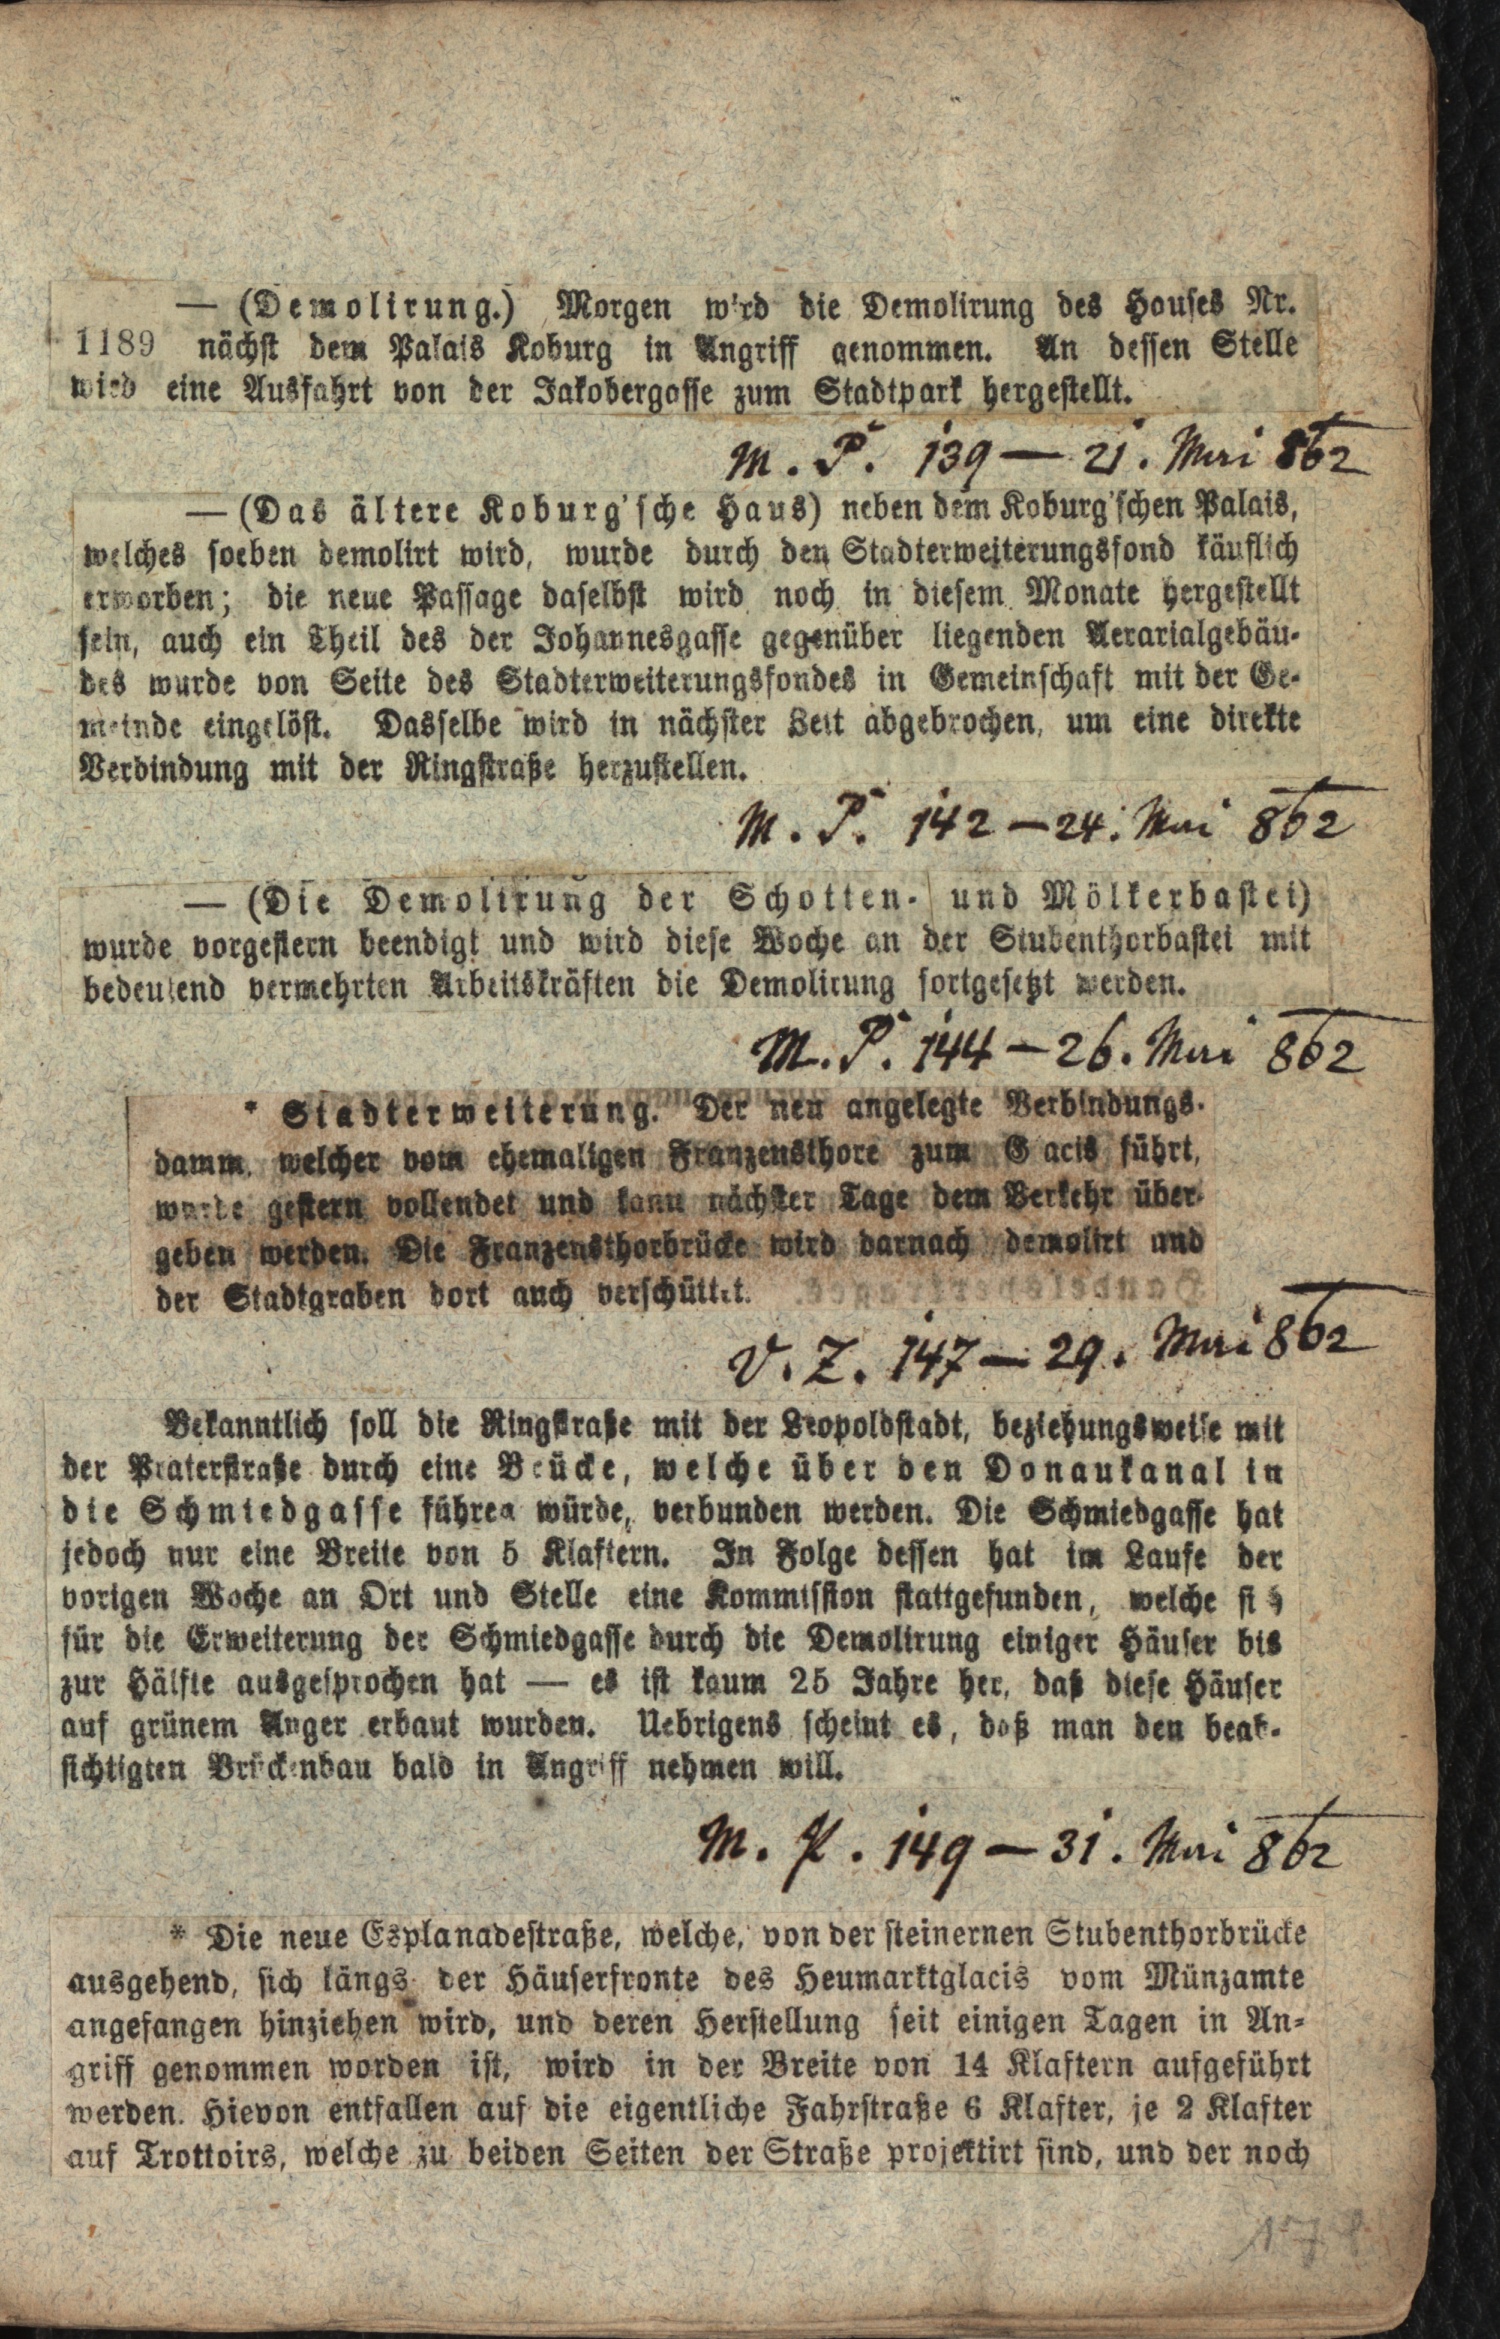 — (Demolirung.) Morgen wird die Demolirung des Houses Nr.
1189 nächst dem Palais Koburg in Angriff genommen. An dessen Stelle
wird eine Ausfahrt von der Jakobergasse zum Stadtpark hergestellt.
M. P. 139 — 21. Mai 862
— (Das ältere Koburg'sche Haus) neben dem Koburg'schen Palais,
welches soeben demolirt wird, wurde durch den Stadterweiterungsfond käuflich
erworben; die neue Passage daselbst wird noch in diesem Monate hergestellt
sein, auch ein Theil des der Johannesgasse gegenüber liegenden Aerarialgebäu-
des wurde von Seite des Stadterweiterungsfondes in Gemeinschaft mit der Ge-
meinde eingelöst. Dasselbe wird in nächster Zeit abgebrochen, um eine direkte
Verbindung mit der Ringstraße herzustellen.
M. P. 142 — 24. Mai 862
— (Die Demolirung der Schotten- und Mölkerbastei)
wurde vorgestern beendigt und wird diese Woche an der Stubenthorbastei mit
bedeutend vermehrten Arbeitskräften die Demolirung fortgesetzt werden.
M. P. 144 — 26. Mai 862
* Stadterweiterung. Der neu angelegte Verbindungs-
damm, welcher vom ehemaligen Franzensthore zum G acis führt,
wurde gestern vollendet und kann nächster Tage dem Verkehr über-
geben werden. Die Franzensthorbrücke wird darnach demolirt und
der Stadtgraben dort auch verschüttet.
V. Z. 147 — 29. Mai 862
Bekanntlich soll die Ringstraße mit der Leopoldstadt, beziehungsweise mit
der Praterstraße durch eine Brücke, welche über den Donaukanal in
die Schmiedgasse führen würde, verbunden werden. Die Schmiedgasse hat
jedoch nur eine Breite von 5 Klaftern. In Folge dessen hat im Laufe der
vorigen Woche an Ort und Stelle eine Kommission stattgefunden, welche sich
für die Erweiterung der Schmiedgasse durch die Demolirung einiger Häuser bis
zur Hälfte ausgesprochen hat — es ist kaum 25 Jahre her, daß diese Häuser
auf grünem Anger erbaut wurden. Uebrigens scheint es, daß man den beab-
sichtigten Brückenbau bald in Angriff nehmen will.
M. P. 149 — 31. Mai 862
* Die neue Esplanadestraße, welche, von der steinernen Stubenthorbrücke
ausgehend, sich längs der Häuserfronte des Heumarktglacis vom Münzamte
angefangen hinziehen wird, und deren Herstellung seit einigen Tagen in An-
griff genommen worden ist, wird in der Breite von 14 Klaftern aufgeführt
werden. Hievon entfallen auf die eigentliche Fahrstraße 6 Klafter, je 2 Klafter
auf Trottoirs, welche zu beiden Seiten der Straße projektirt sind, und der noch